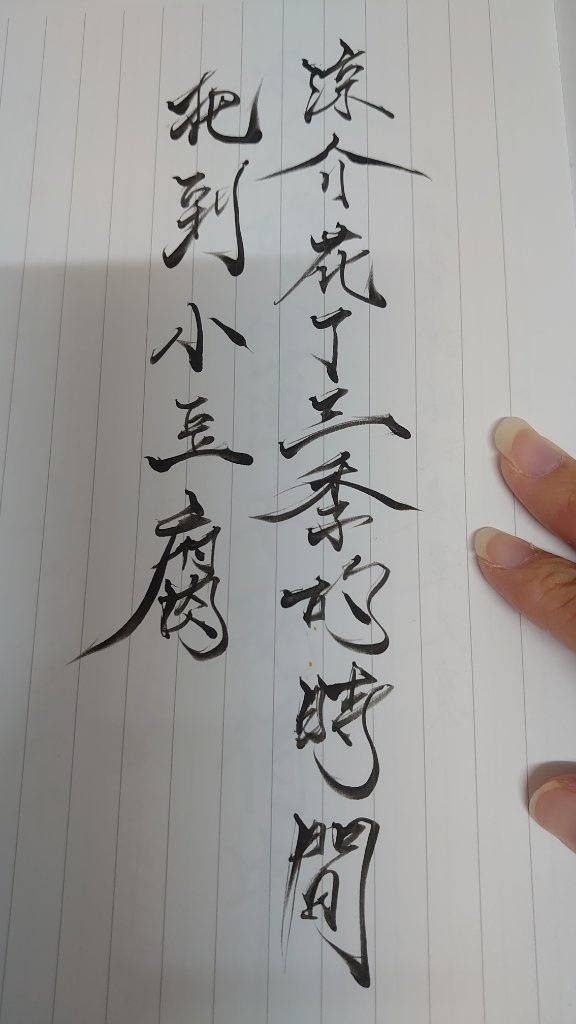 涼介花了三季的時間
把到小豆腐